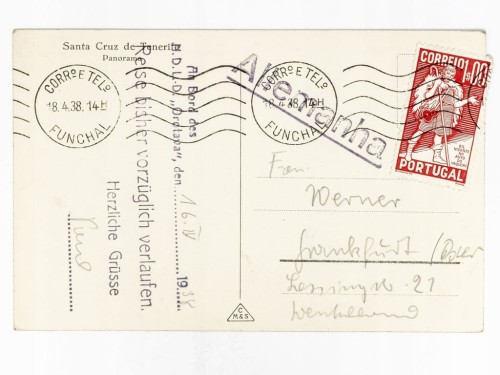 Santa Cruz de Tenerife
Panorama
CORRO E TELO
18.4.38.14H
FUNCHAL
An Bord des
H.D.L.D. „Ordlapa", den 16. IV 1938
Reise bisher vorzüglich verlaufen.
Herzliche Grüsse
Allemanha
CORRO E TELO
18.4.38.14H
FUNCHAL
CORREIO 1$00
PORTUGAL
Werner
Frankfurt / Oder
Lessingstr. 21
C
M&S